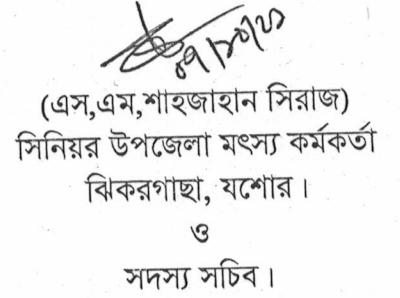 ০৭/১০/২১
(এস,এম,শাহজাহান সিরাজ)
সিনিয়র উপজেলা মৎস্য কর্মকর্তা
ঝিকরগাছা, যশোর।
ও
সদস্য সচিব।